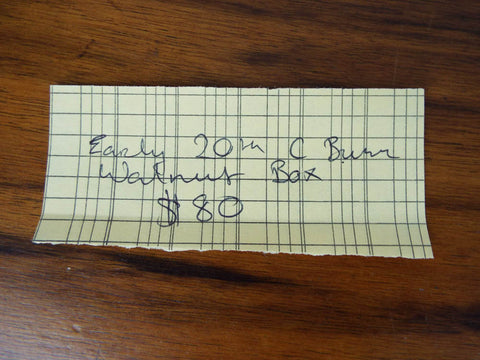 Early 20th C Burr
Walnut Box
$80